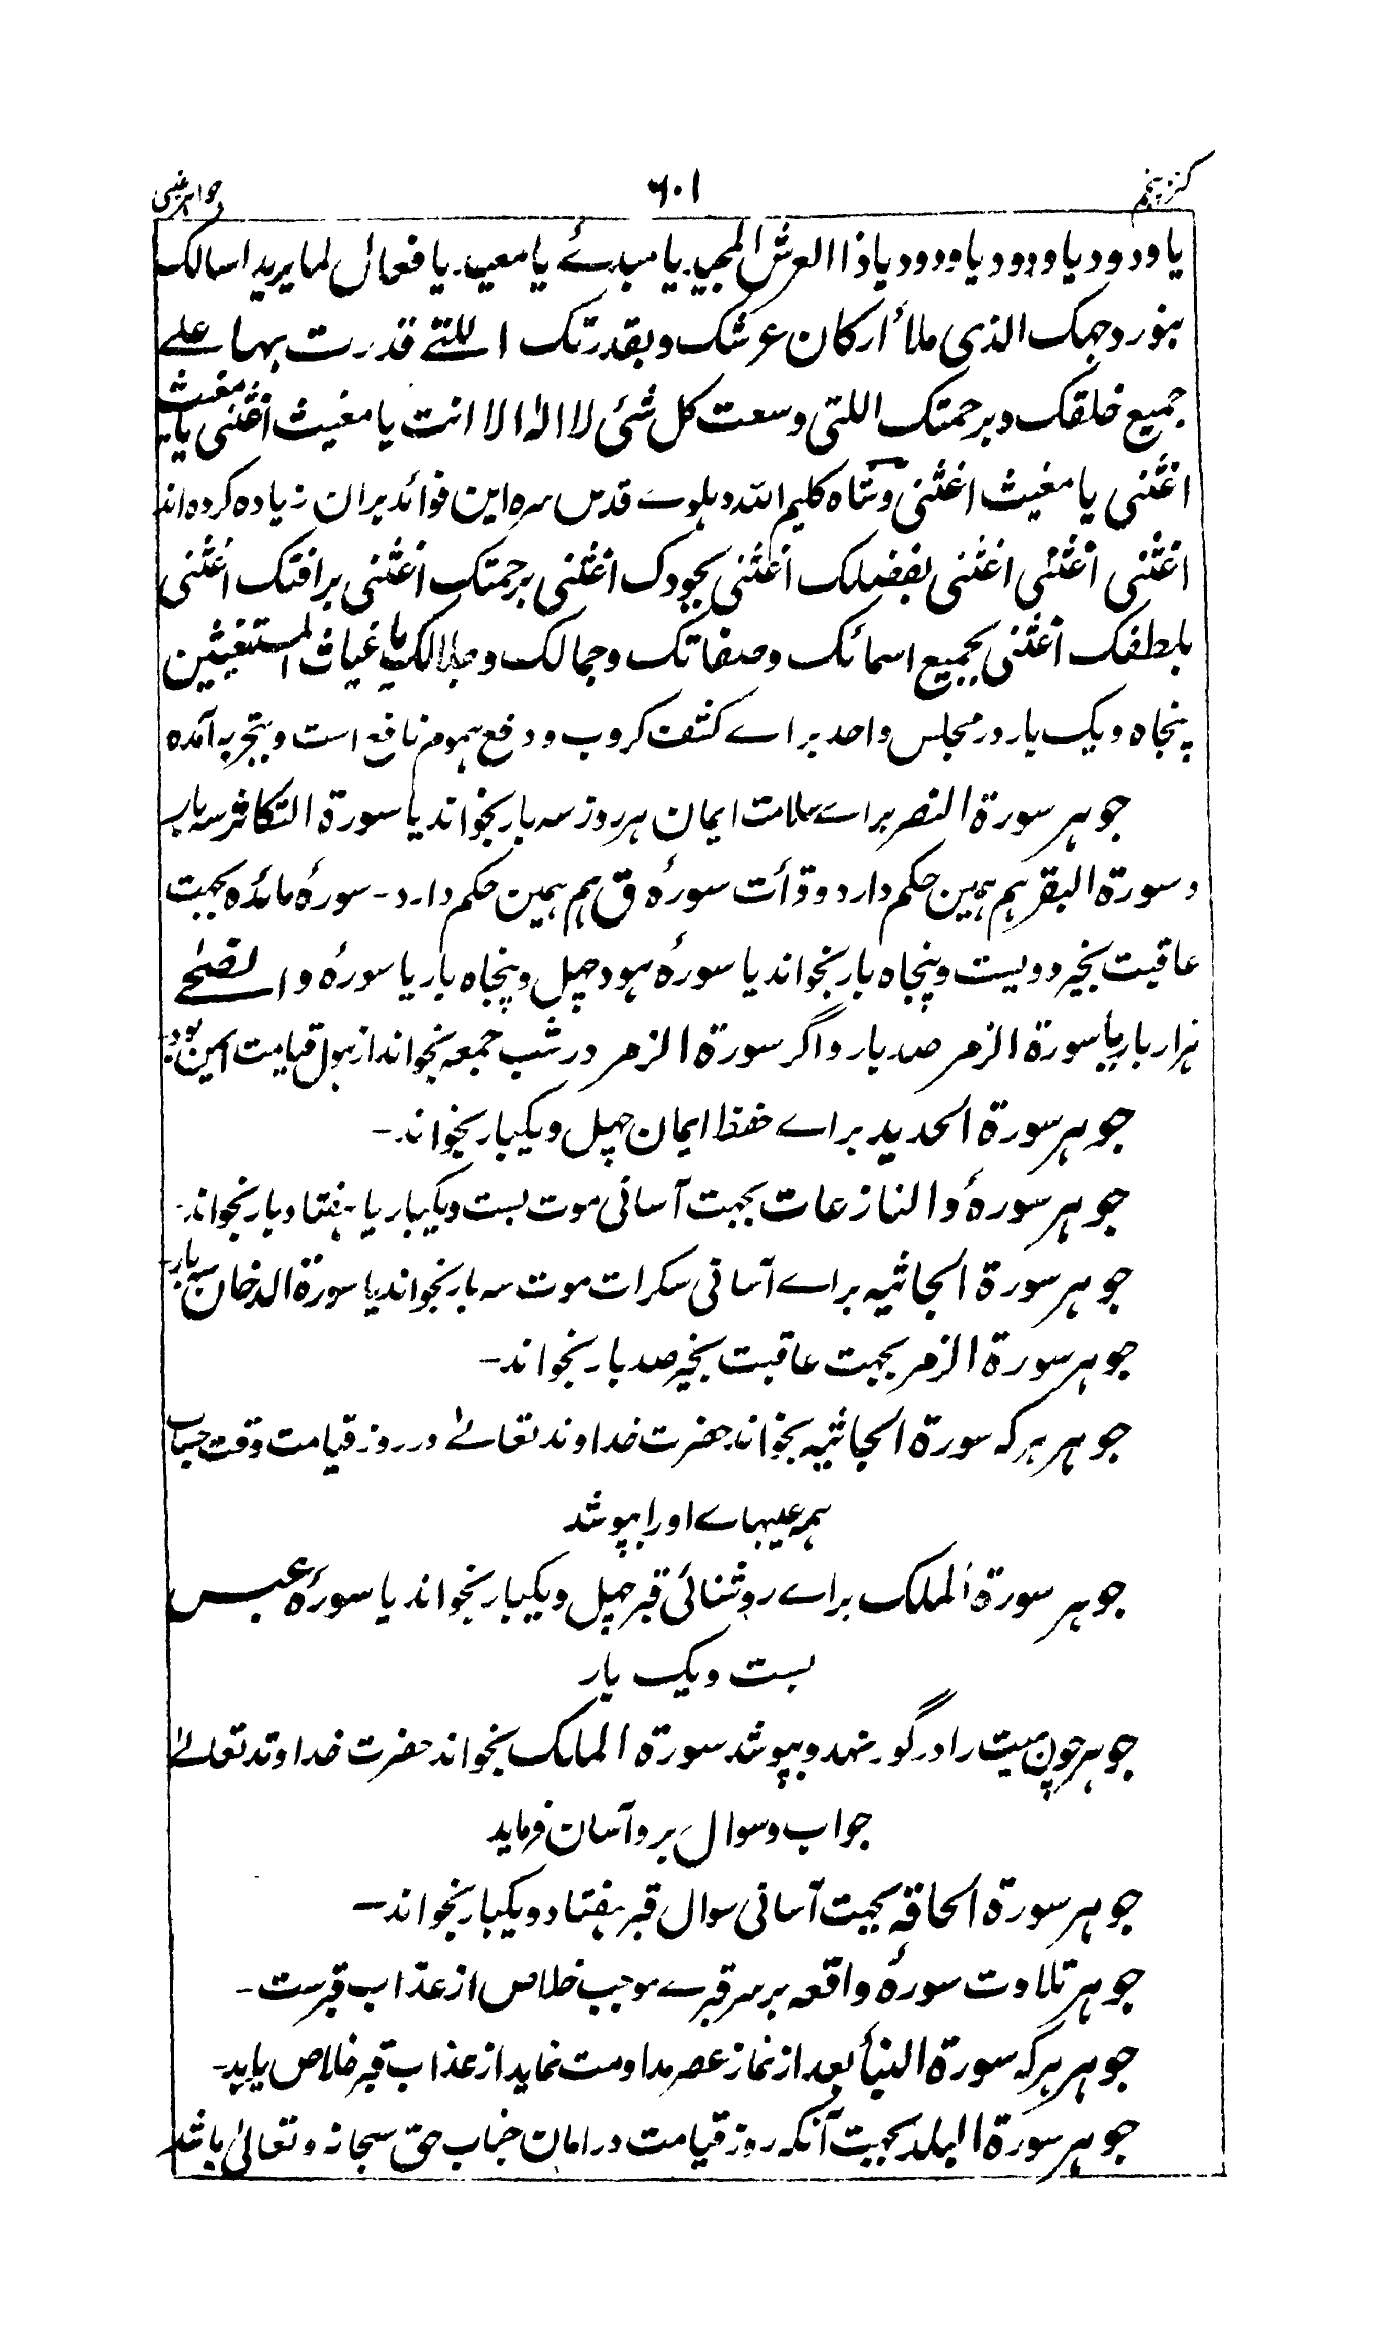 کنز پنجم ۶۰۱ جواہر غیبی
یا ودود یا ودود یا ودود یا ذا العرش المجید یا مبدئ یا معید یا فعال لما یرید اسالک
بنور وجہک الذی ملأ ارکان عرشک وبقدرتک اللتے قدرت بہا علے
جمیع خلقک وبرحمتک اللتی وسعت کل شئ لا الہ الا انت یا مغیث اغثنی یا مغیث
اغثنی یا مغیث اغثنی وشاہ کلیم اللہ دہلوے قدس سرہ این فوائد بران زیادہ کردہ اند
اغثنی اغثنی اغثنی بفضلک اغثنی بجودک اغثنی برحمتک اغثنی برافتک اغثنی
بلطفک اغثنی بجمیع اسمائک وصفاتک وجمالک وجلالک یا غیاث المستغیثین
پنجاہ ویک بار در مجلس واحد براے کشف کروب ودفع ہموم نافع است وبتجربہ آمدہ
جوہر سورۃ النصر براے سلامت ایمان ہر روز سہ بار بخواند یا سورۃ التکاثر سہ بار
و سورۃ البقر ہم ہمین حکم دارد وقرأت سورۂ ق ہم ہمین حکم دارد - سورۂ مائدہ بجہت
عاقبت بخیر دویست وپنجاہ بار بخواند یا سورۂ ہود چہل وپنجاہ بار یا سورۂ والضحے
ہزار بار یا سورۃ الزمر صد بار واگر سورۃ الزمر در شب جمعہ بخواند از ہول قیامت ایمن بود
جوہر سورۃ الحدید براے حفظ ایمان چہل ویکبار بخواند -
جوہر سورۂ والنازعات بجہت آسانی موت بست ویکبار یا ہفتاد بار بخواند -
جوہر سورۃ الجاثیہ براے آسانی سکرات موت سہ بار بخواند یا سورۃ الدخان سہ بار -
جوہر سورۃ الزمر بجہت عاقبت بخیر صد بار بخواند -
جوہر ہرکہ سورۃ الجاثیہ بخواند حضرت خداوند تعالےٰ در روز قیامت وقت حساب
ہمہ عیبہاے اورا بپوشد
جوہر سورۃ الملک براے روشنائی قبر چہل ویکبار بخواند یا سورۂ عبس
بست ویک بار
جوہر چون میت را در گور نہد وبپوشد سورۃ الملک بخواند حضرت خداوند تعالےٰ
جواب وسوال برو آسان فرماید
جوہر سورۃ الحاقہ بجہت آسانی سوال قبر ہفتاد ویکبار بخواند -
جوہر تلاوت سورۂ واقعہ بر سر قبرے موجب خلاص از عذاب قبرست -
جوہر ہرکہ سورۃ النبأ بعد از نماز عصر مداومت نماید از عذاب قبر خلاص یابد -
جوہر سورۃ البلد بجہت آنکہ روز قیامت در امان جناب حق سبحانہ وتعالیٰ باشد